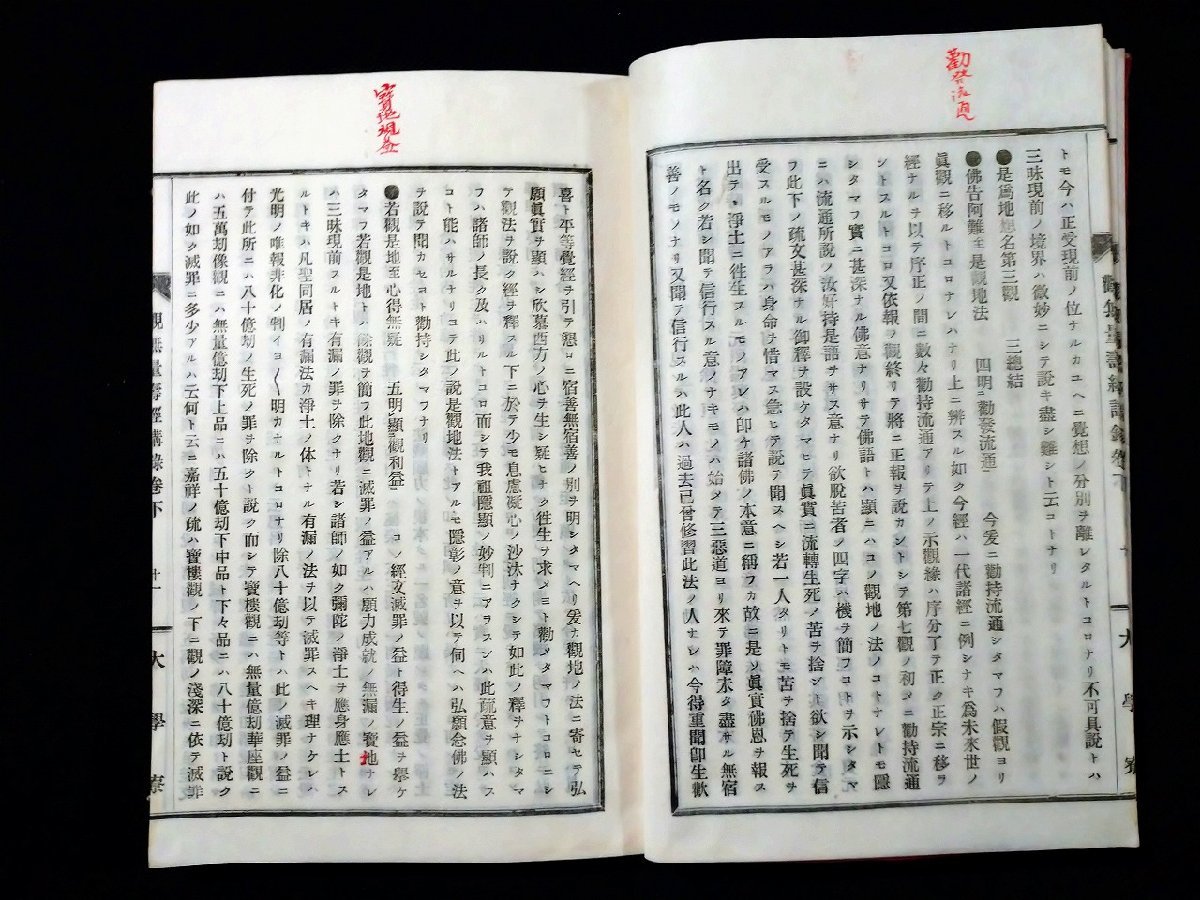 勸發流通
トモ今ハ正受現前ノ位ナルカユヘニ覺想ノ分別ヲ離レタルトコロナリ不可具説トハ
三昧現前ノ境界ハ微妙ニシテ説キ盡シ難シト云コトナリ
●是爲地想名第三觀　三總結
●佛告阿難至是觀地法　四明勸發流通　今爰ニ勸持流通シタマフハ假觀ヨリ
眞觀ニ移ルトコロナレハナリ上ニ辨スル如ク今經ハ一代諸經ニ例シナキ爲未來世ノ
經ナルヲ以テ序正ノ間ニ數々勸持流通アリテ上ノ示觀緣ハ序分丁テ正ク正宗ニ移ラ
ントスルトコロ又依報ヲ觀終リテ將ニ正報ヲ説カントシテ第七觀ノ初タニ勸持流通
シタマフ實ニ甚深ナル佛意ナリサテ佛語トハ顯ニハコノ觀地ノ法ノコトナレトモ隱
ニハ流通所説ノ汝好持是語チサス意ナリ欲脱苦者ノ四字ハ機ヲ簡フコトヲ示シタマ
フ此下ノ疏文甚深ナル御釋ヲ設ケタマヒテ眞實ニ流轉生死ノ苦ヲ捨ント欲シ聞テ信
受スルモノアラハ身命ヲ惜マス急ヒテ説テ聞スヘシ若一人タリトモ苦ヲ捨テ生死ヲ
出テシ淨土ニ徃生スルモノアレハ印ケ諸佛ノ本意ニ稱フカ故ニ是ソ眞實佛恩ヲ報ス
ト名ク若シ聞テ信行スル意ノナキモノハ始メテ三惡道ヨリ來テ罪障未タ盡サル無宿
善ノモノナリ又聞テ信行スルハ此人ハ過去已曾修習此法ノ人ナレハ今得重聞卽生歡
大學寮
寶地觀益
喜ト平等覺經ヲ引テ懇ロニ宿善無宿善ノ別ヲ明シタマヘリ爰ナ觀地ノ法ニ寄セテ弘
願眞實ヲ顯ハシ欣慕西方ノ心ヲ生シ疑ヒナク徃生ヲ求メヨト勸メタマフトコロニシ
テ觀法ヲ説ク經ヲ釋スル下ニ於テ少モ息慮凝心ノ沙汰ナクシテ如此ノ釋ヲナシタマ
フハ諸師ノ長ク及ハサルトコロ而シテ我祖隱顯ノ妙判ニアラスンハ此疏意ヲ顯ハス
コト能ハサルナリコテ此ノ説是觀地法トアルモ隱彰ノ意ヲ以テ伺ヘハ弘願念佛ノ法
ヲ説テ聞カセヨト勸持シタマフナリ
●若觀是地至心得無疑　五明顯觀利益　コノ經文滅罪ノ益ト得生ノ益ヲ擧ケ
タマフ若觀是地トハ餘觀ヲ簡フ此地觀ニ滅罪ノ益アルハ願力成就ノ無漏ノ寶地ナレ
ハ三昧現前スルトキ有漏ノ罪ヲ除クナリ若シ諸師ノ如ク彌陀ノ淨土ヲ應身應土トス
ルトキハ凡聖同居ノ有漏法カ淨土ノ体トナル有漏ノ法ヲ以テ滅罪スヘキ理ナケレハ
光明ノ唯報非化ノ判イヨ〱明カナルトコロナリ除八十億劫等トハ此ノ滅罪ノ益ニ
付テ此所ニハ八十億劫ノ生死ノ罪ヲ除クト説ク而シテ寶樓觀ニハ無量億劫華座觀ニ
ハ五萬劫像觀ニハ無量億劫下上品ニハ五十億劫下中品ト下々品ニハ八十億劫ト説ク
此ノ如ク滅罪ニ多少アルハ云何ト云ニ嘉祥ノ疏ハ寶樓觀ノ下ニ觀ノ淺深ニ依テ滅罪
觀無量壽經講錄卷下　十一　大學寮